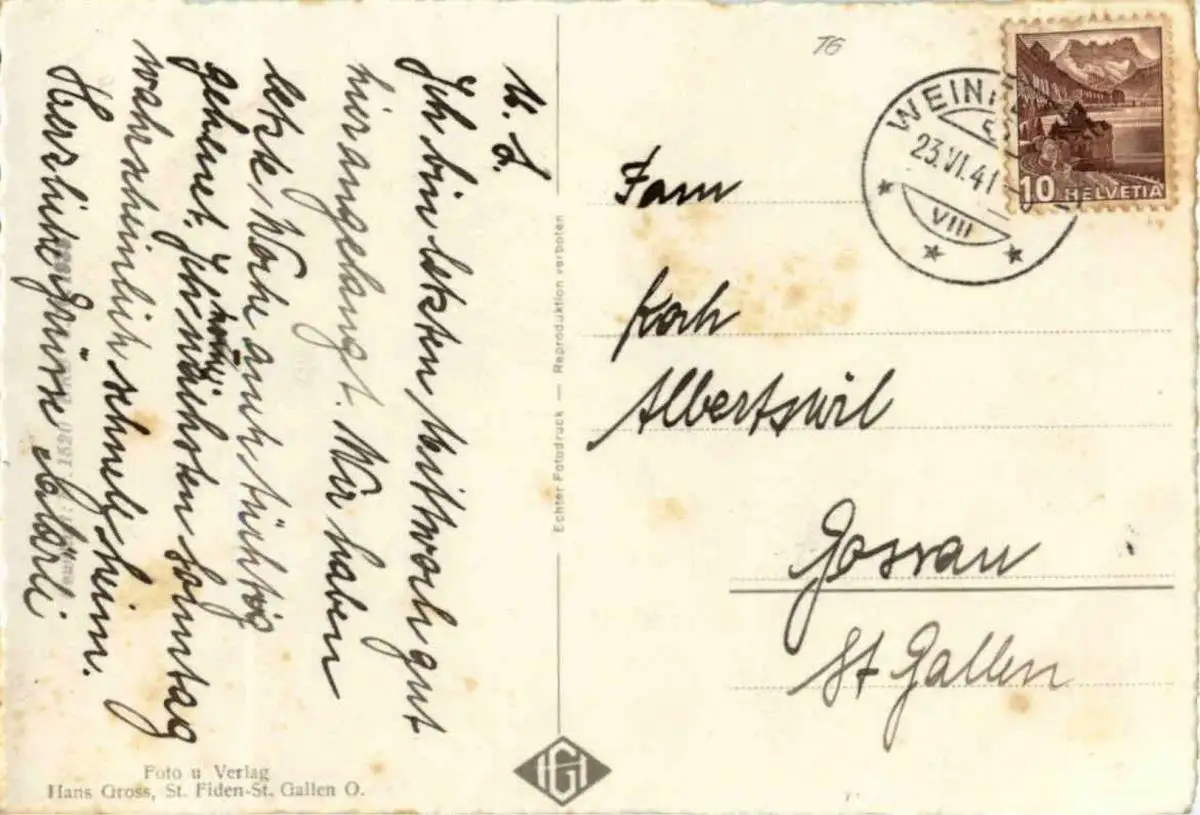 M. L.
Ich bin letzten Mittwoch gut
hier angelangt. Wir haben
letzte Woche auch tüchtig
geheuet. Ich
nächsten Sonntag
wahrscheinlich schnell heim.
Herzliche Grüsse
Foto u Verlag
Hans Gross, St. Fiden-St. Gallen O.
Echter Fotodruck — Reproduktion verboten
HG
T6
WEIN
23.VI.41
VIII
10 HELVETIA
Fam
Koch
Albertswil
Gossau
St Gallen